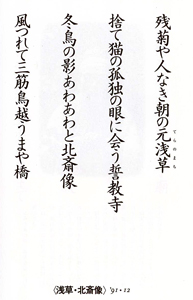 残菊や人なき朝の元浅草
てらのまち
捨て猫の孤独の眼に会う誓教寺
冬鳥の影あわあわと北斎像
風つれて三筋鳥越うまや橋
〈浅草・北斎像〉 '91・12